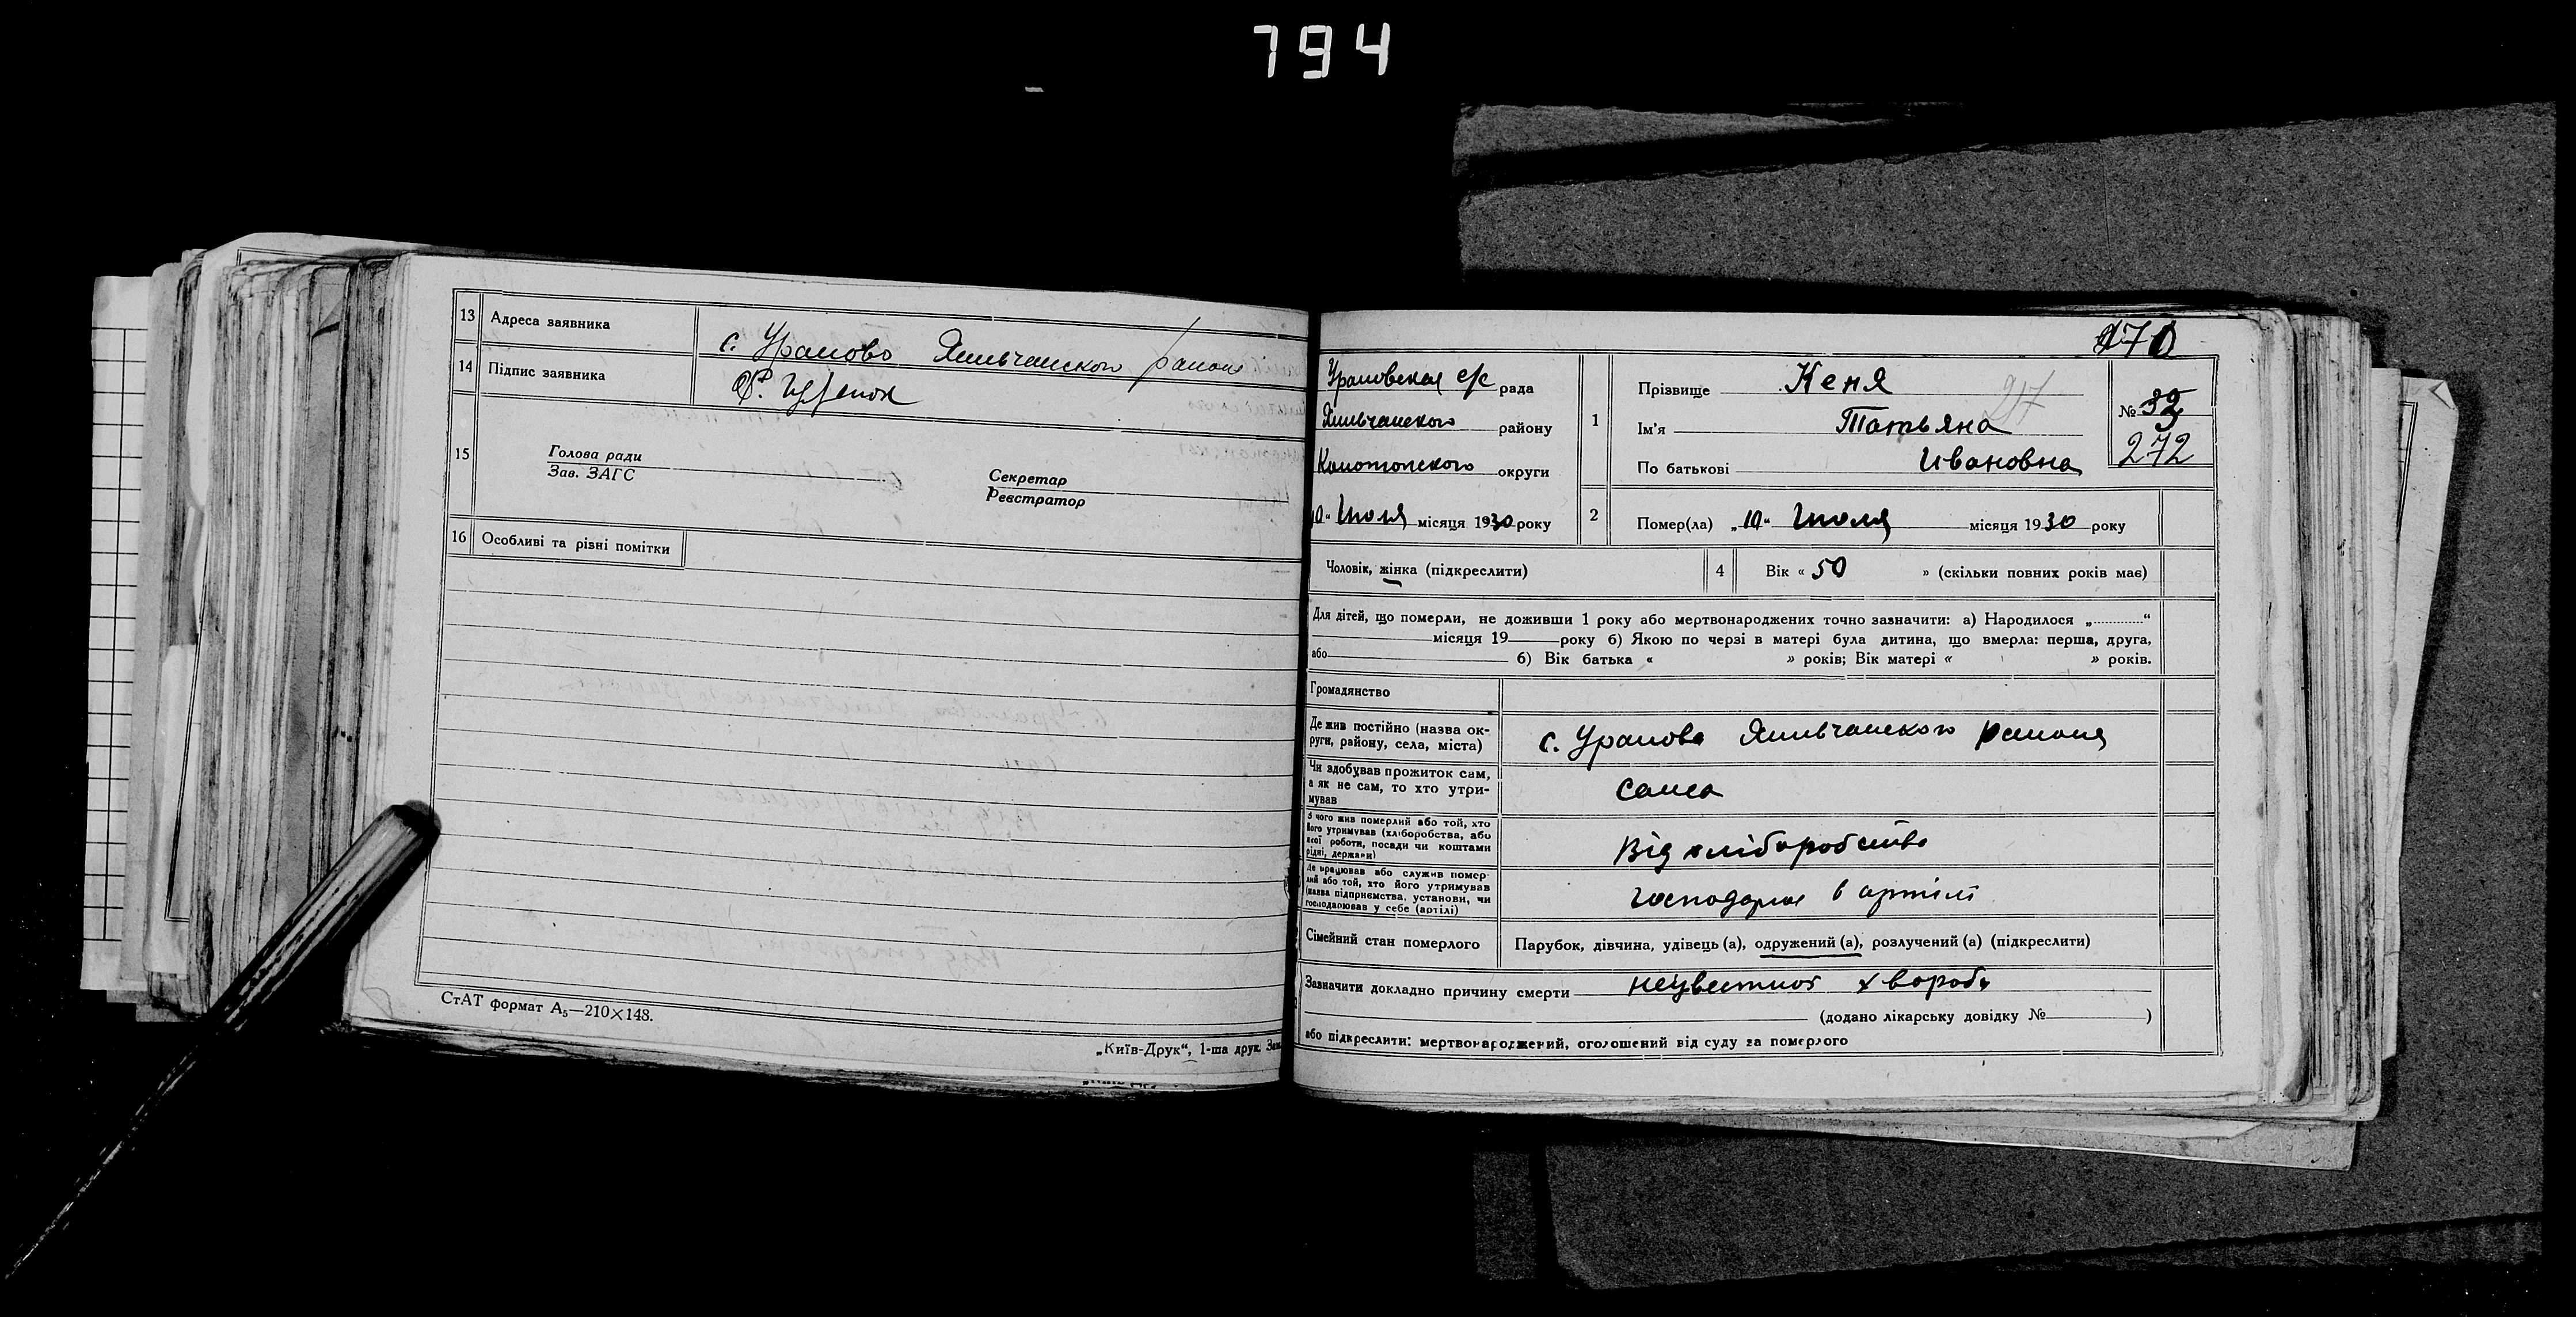 794
13 Адреса заявника с. Ураново Ямпольчанского района
14 Підпис заявника
15 Голова ради
Зав. ЗАГС
Секретар
Реєстратор
16 Особливі та різні помітки
СтАТ формат А₅—210×148.
„Київ-Друк“, 1-ша друк. Зам.
170
рада
району
Конотопского округи
10“ Июля місяця 1930 року
1 Прізвище Кеня
Ім'я Татьяна
По батькові Ивановна
217
№ 32
272
2 Помер(ла) „10“ Июля місяця 1930 року
Чоловік, жінка (підкреслити)
4 Вік « 50 » (скільки повних років має)
Для дітей, що померли, не доживши 1 року або мертвонароджених точно зазначити: а) Народилося „............“
місяця 19 року б) Якою по черзі в матері була дитина, що вмерла: перша, друга,
або б) Вік батька « » років; Вік матері « » років.
Громадянство
Де жив постійно (назва ок-
руги, району, села, міста)
с. района
Чи здобував прожиток сам,
а як не сам, то хто утри-
мував
сама
З чого жив померлий або той, хто
його утримував (хліборобства, або
якої роботи, посади чи коштами
рідні, держави)
Від хліборобства
Де працював або служив помер-
лий або той, хто його утримував
(назва підприємства, установи, чи
господарював у себе (артілі)
в артілі
Сімейний стан померлого
Парубок, дівчина, удівець (а), одружений (а), розлучений (а) (підкреслити)
Зазначити докладно причину смерти хвороби
(додано лікарську довідку № )
або підкреслити: мертвонароджений, оголошений від суду за померлого